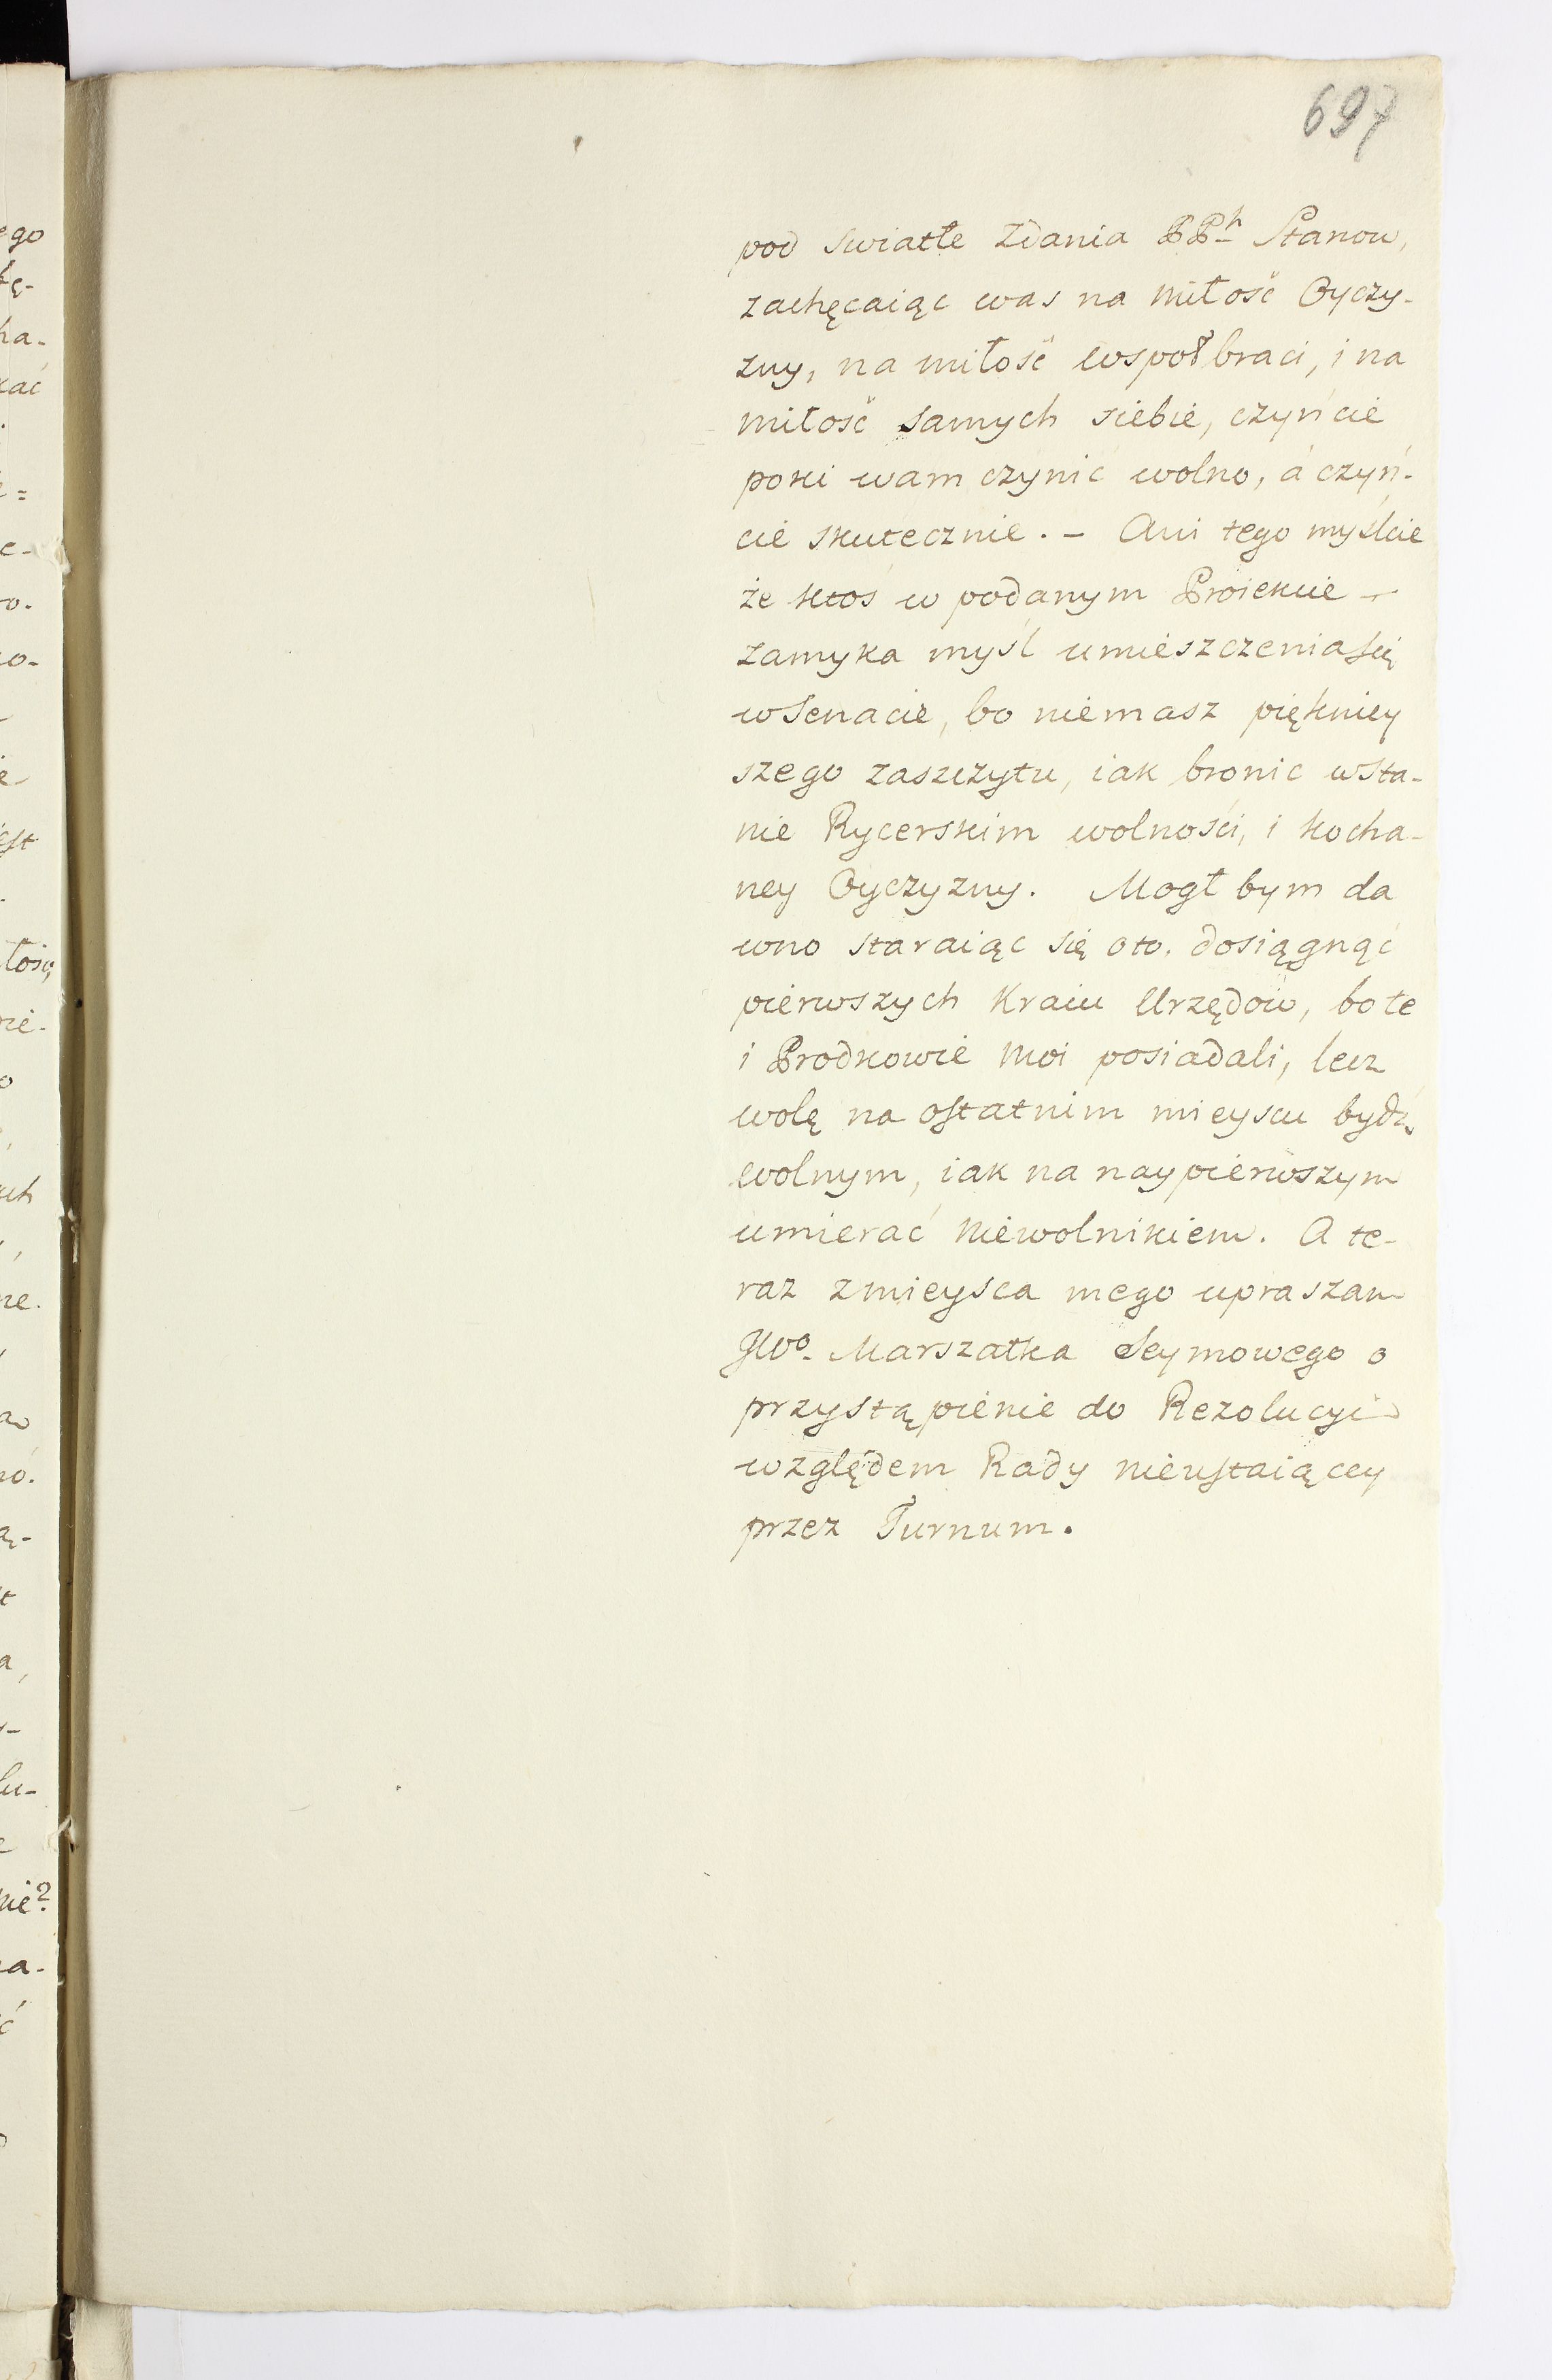 697
pod swiatłe Zdania PPh Stanow,
zachęcaiąc was na miłość Oyczy-
zny, na miłość wspoł braci, i na
miłość samych siebie, czyńcie
poki wam czynić wolno, á czyń-
cie skutecznie. - Ani tego myślcie
że ktoś w podanym Proiekcie -
zamyka myśl umieszczenia się
w Senacie, bo niemasz piękniey
szego zaszczytu, iak bronic w sta-
nie Rycerskim wolności, i kocha-
ney Oyczyzny. Mogł bym da
wno staraiąc się oto, dosiągnąć
pierwszych Kraiu Urzędow, bo te
i Przodkowie moi posiadali, lecz
wolę na ostatnim mieyscu bydź
wolnym, iak na naypierwszym
umierać niewolnikiem. A te-
raz z mieysca mego upraszam
JWo Marszałka Seymowego o
przystąpienie do Rezolucyi
względem Rady nieustaiącey
przez Turnum.
ego
kę-
ha-
kać
e=
e-
o-
o-
est
łość,
nie-
o
uch
ne.
no.
ą-
t
a,
lu-
nie?
na-
ć